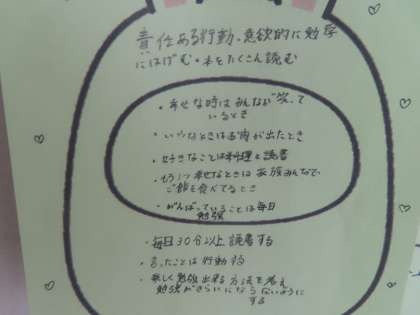 責任ある行動、意欲的に勉学
にはげむ・本をたくさん読む
・幸せな時はみんなが笑って
いるとき
・いやなときは舌打が出たとき
・好きなことは料理と読書
・もう1つ幸せなときは家族みんなで
ご飯を食べてるとき
・がんばっていることは毎日
勉強
・毎日30分以上読書する
・言ったことは行動する
・楽しく勉強出来る方法を考え
勉強がきらいにならないように
する